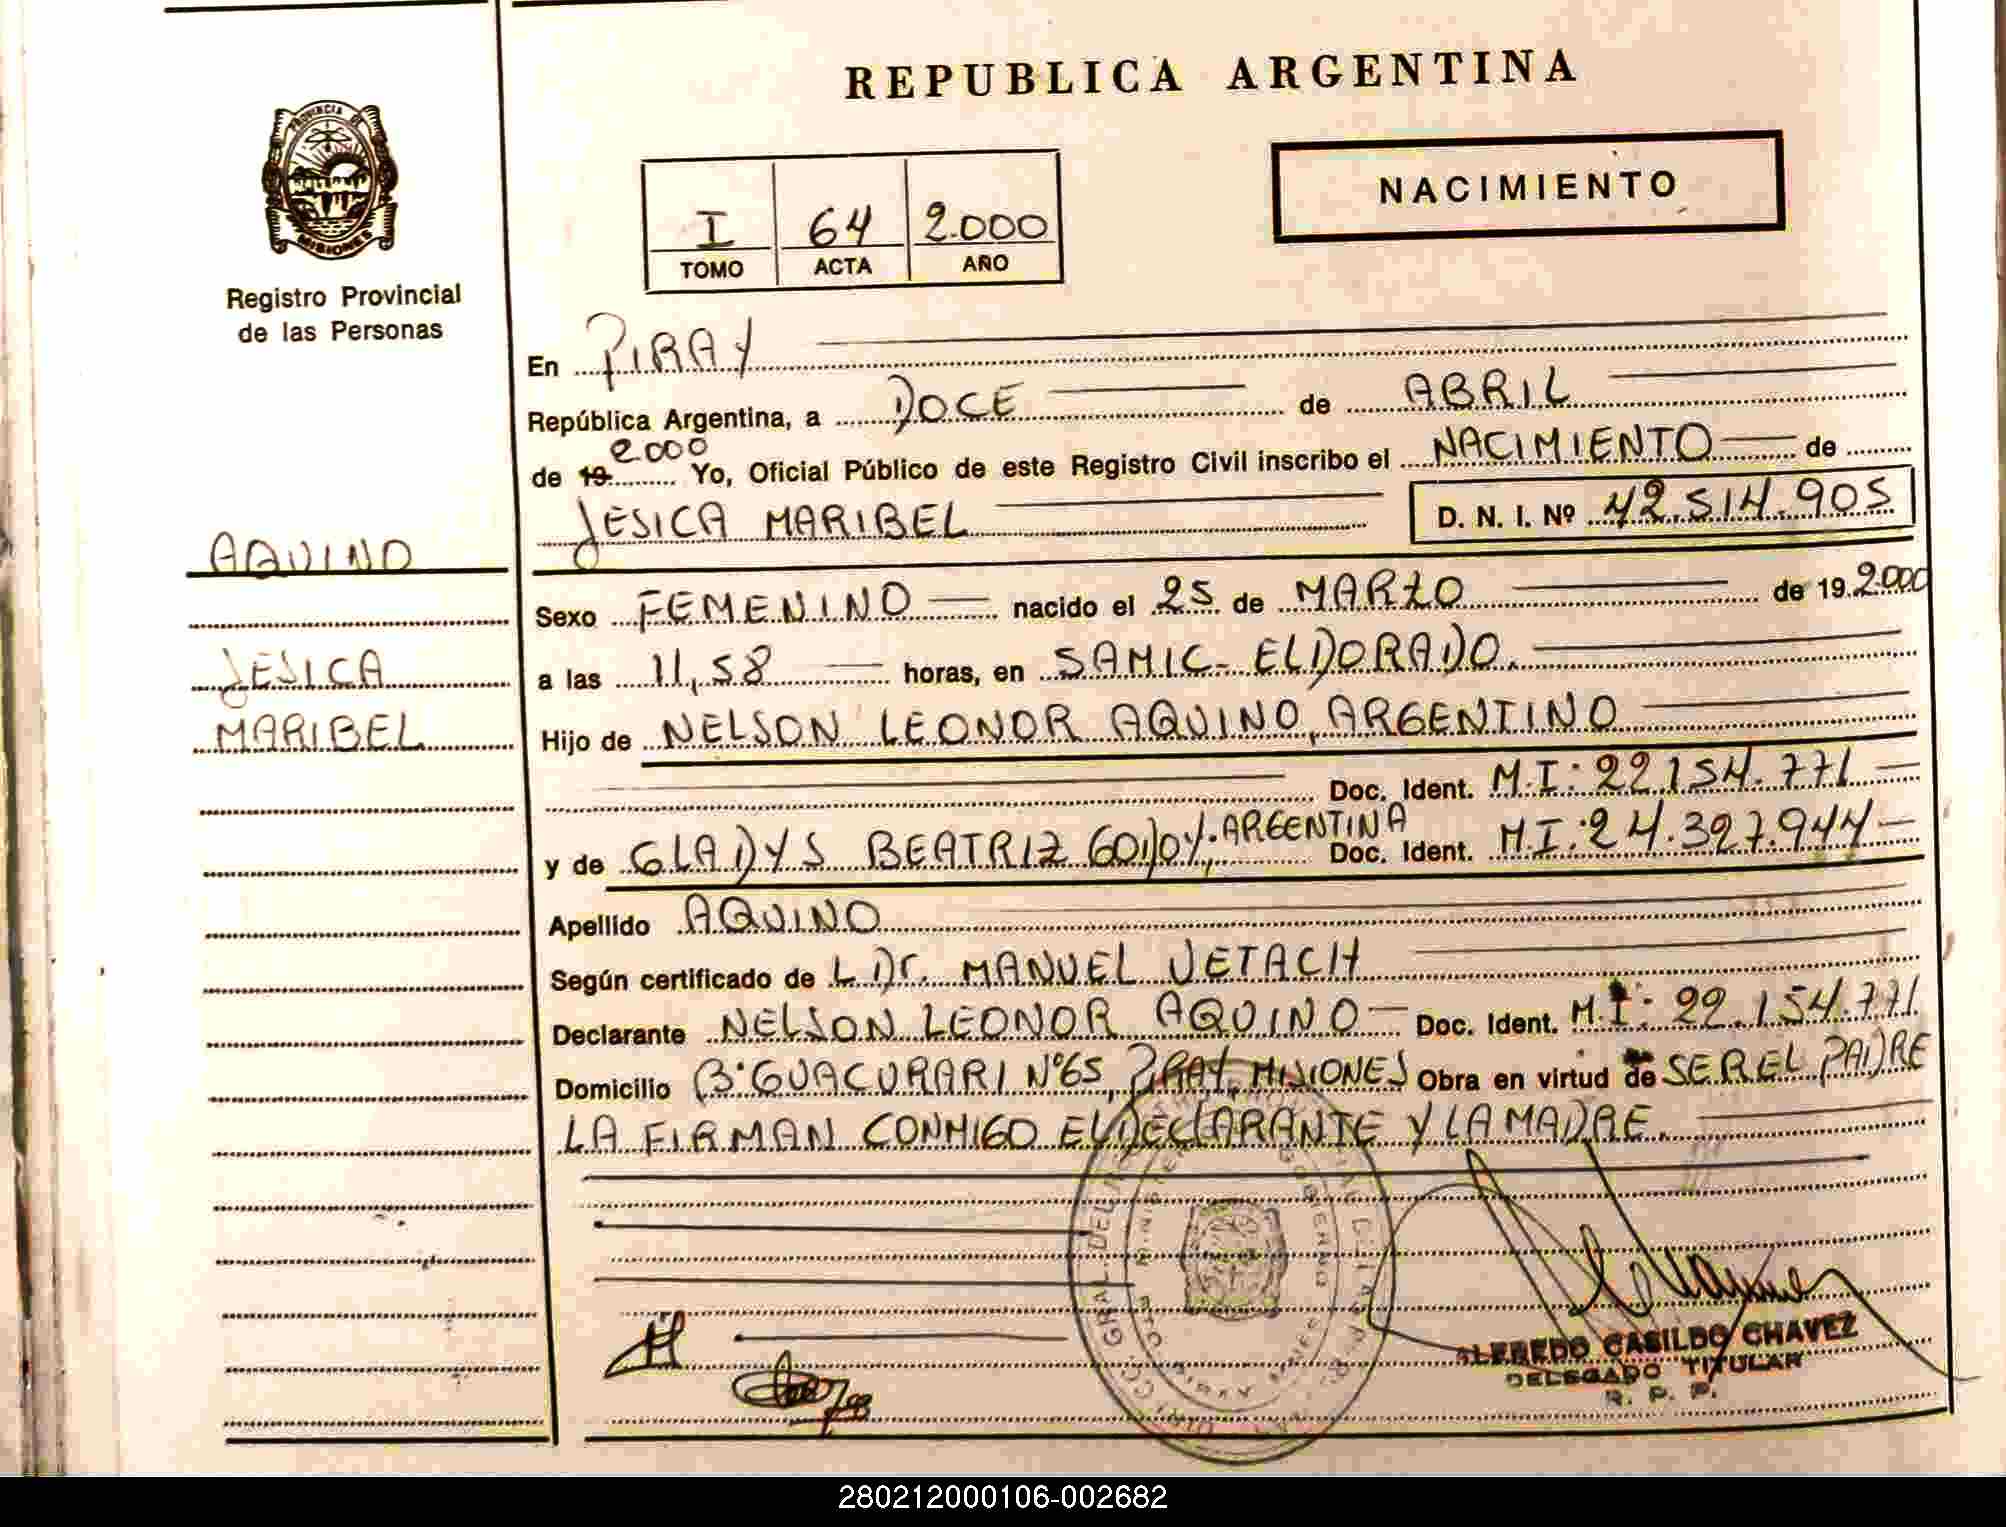 REPUBLICA ARGENTINA
PROVINCIA DE
MISIONES
Registro Provincial
de las Personas
NACIMIENTO
I 64 2.000
TOMO ACTA AÑO
En PIRAY
República Argentina, a DOCE de ABRIL
2.000
de 19 Yo, Oficial Público de este Registro Civil inscribo el NACIMIENTO de
JESICA MARIBEL D. N. I. Nº 42.514.905
AQUINO
JESICA
MARIBEL
Sexo FEMENINO nacido el 25 de MARZO de 19 2.000
a las 11,58 horas, en SAMIC- ELDORADO.
Hijo de NELSON LEONOR AQUINO, ARGENTINO
Doc. Ident. M.I: 22.154.771
y de GLADYS BEATRIZ GODOY, ARGENTINA Doc. Ident. M.I: 24.327.944
Apellido AQUINO
Según certificado de L Dr. MANUEL VETACH
Declarante NELSON LEONOR AQUINO Doc. Ident. M.I: 22.154.771
Domicilio Bº GUACURARI Nº 65, PIRAY, MISIONES Obra en virtud de SER EL PADRE
LA FIRMAN CONMIGO EL DECLARANTE Y LA MADRE.
ALFREDO CASILDO CHAVEZ
DELEGADO TITULAR
R. P. P.
280212000106-002682